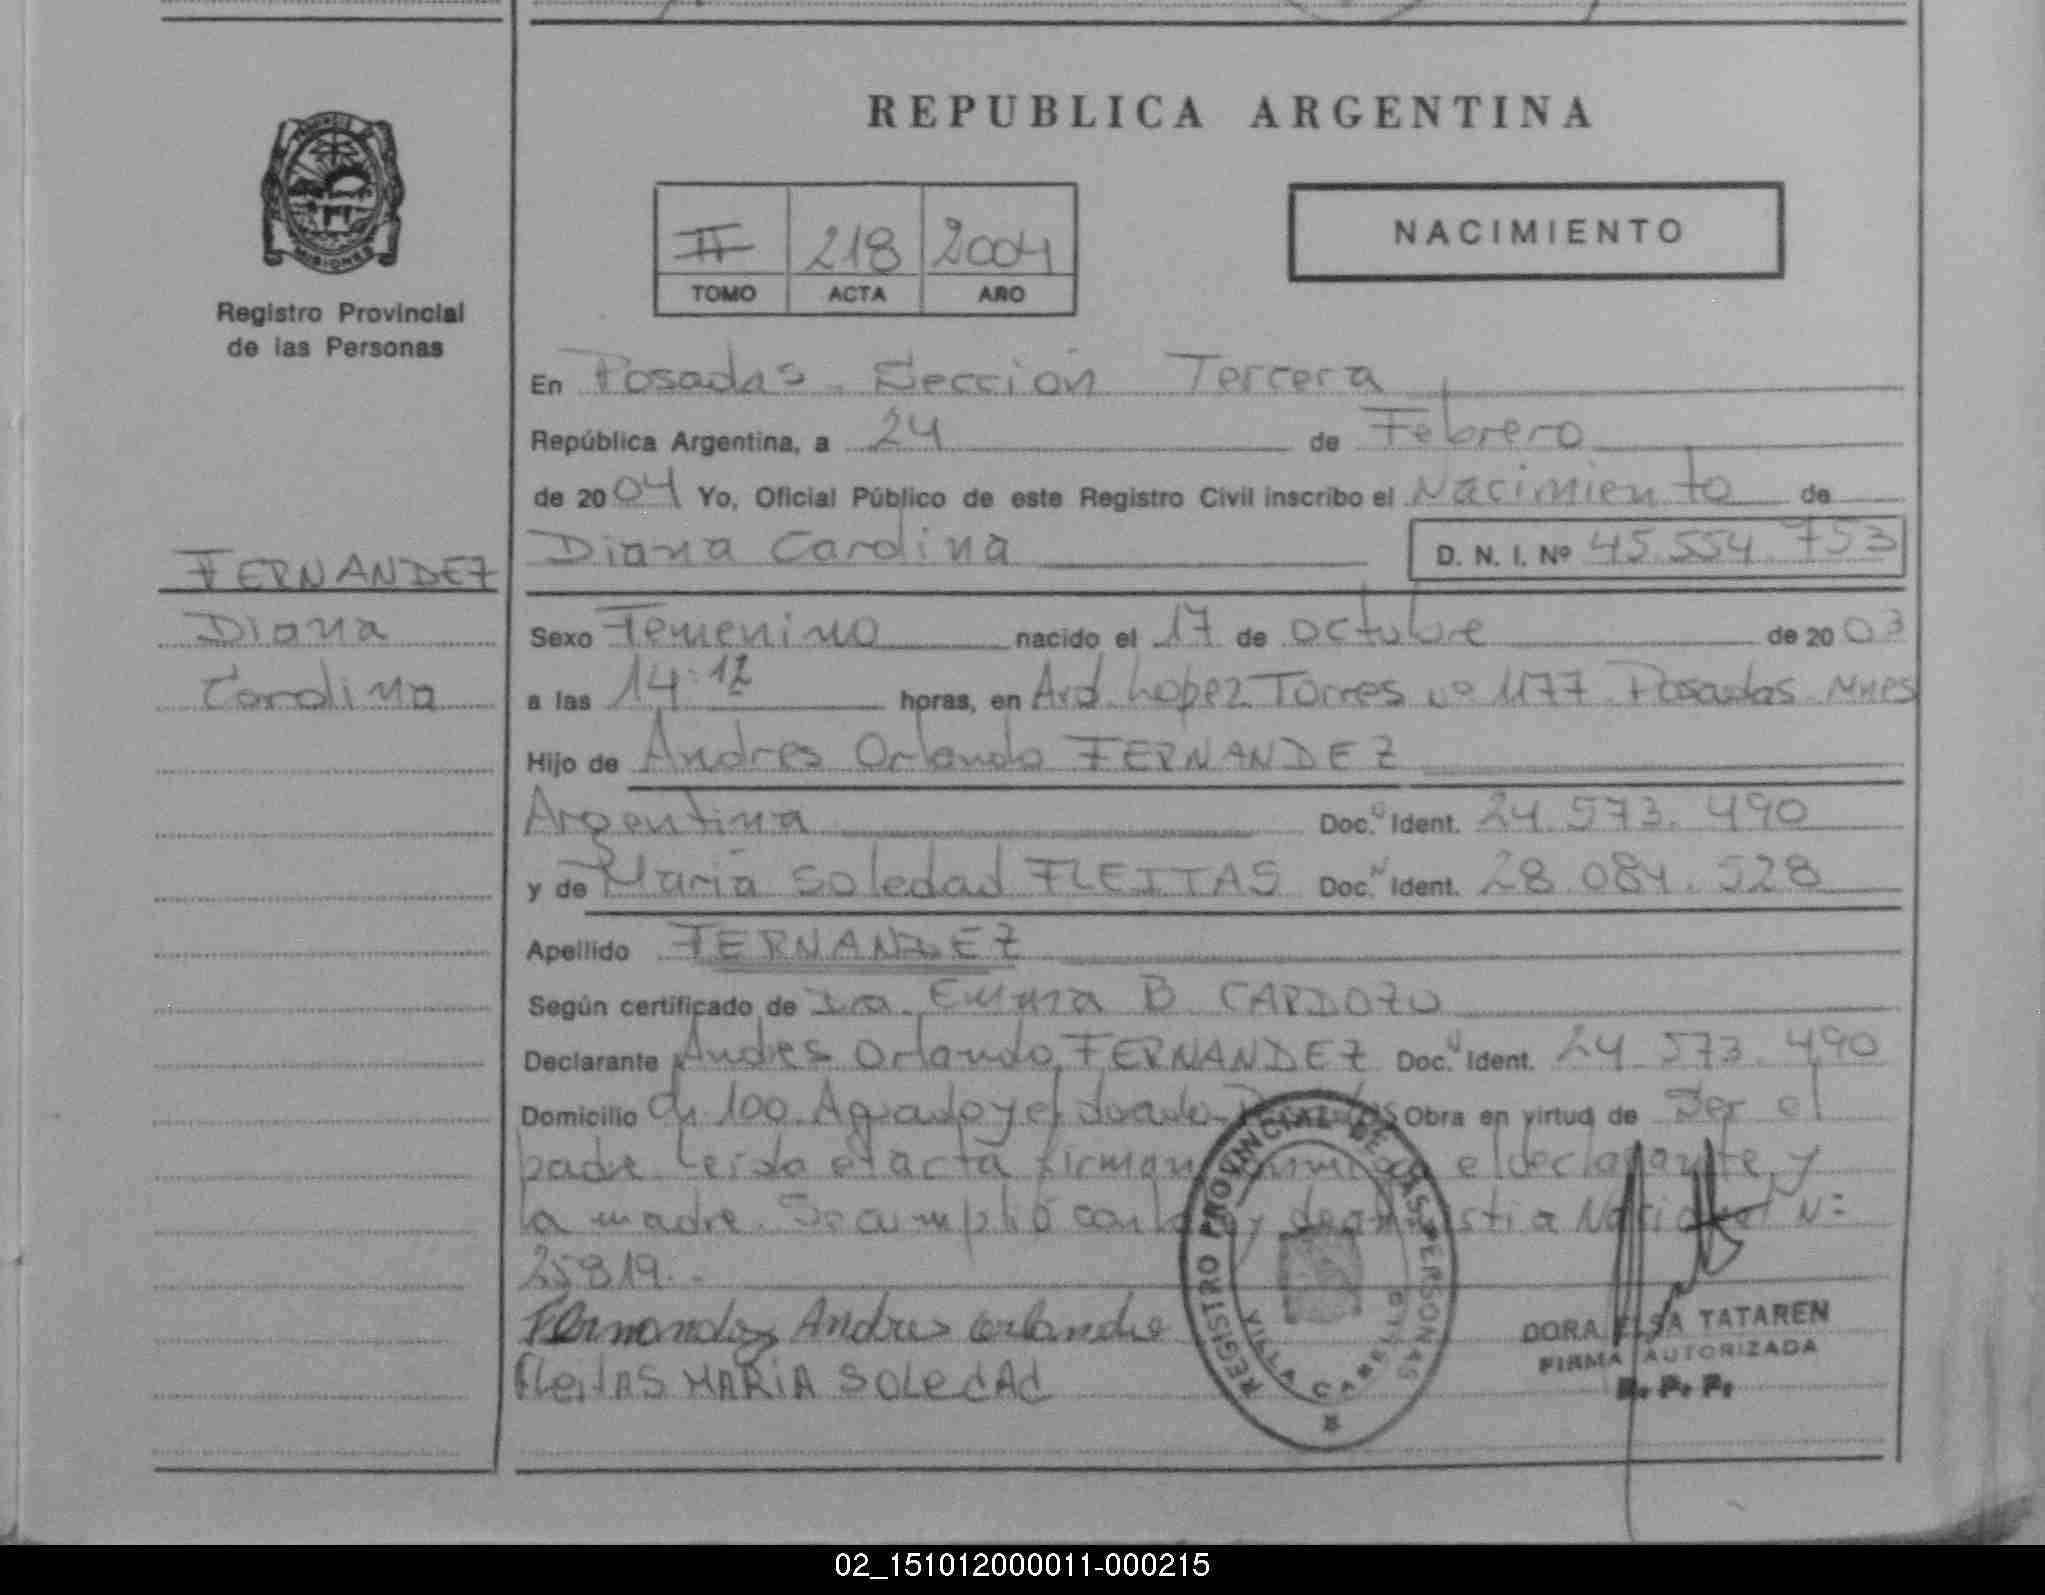 REPUBLICA ARGENTINA
PROVINCIA DE MISIONES
Registro Provincial
de las Personas
II 218 2004
TOMO ACTA AÑO
NACIMIENTO
En Posadas - Sección Tercera
República Argentina, a 24 de Febrero
de 2004 Yo, Oficial Público de este Registro Civil inscribo el Nacimiento de
Diana Carolina D. N. I. Nº 45.554.753
FERNANDEZ
Diana
Carolina
Sexo Femenino nacido el 17 de octubre de 2003
a las 14:12 horas, en Avd. Lopez Torres nº 1177 Posadas Mnes
Hijo de Andres Orlando FERNANDEZ
Argentina Doc. Ident. 24.573.490
y de Maria Soledad FLEITAS Doc. Ident. 28.084.528
Apellido FERNANDEZ
Según certificado de Dra. Emma B CARDOZO
Declarante Andres Orlando FERNANDEZ Doc. Ident. 24.573.490
Domicilio Ch 100 Aguado y el Obra en virtud de Ser el
padre. Leida el acta firman conmigo el declarante y
la madre. Se cumplió con la ley de amnistia Nacional Nº
25819.-
Fernandez Andres orlando
FLeitAS MARiA SOLedAd
REGISTRO PROVINCIAL DE LAS PERSONAS
VILLA CABELLO
DORA ELSA TATAREN
FIRMA AUTORIZADA
R. P. P.
02_151012000011-000215